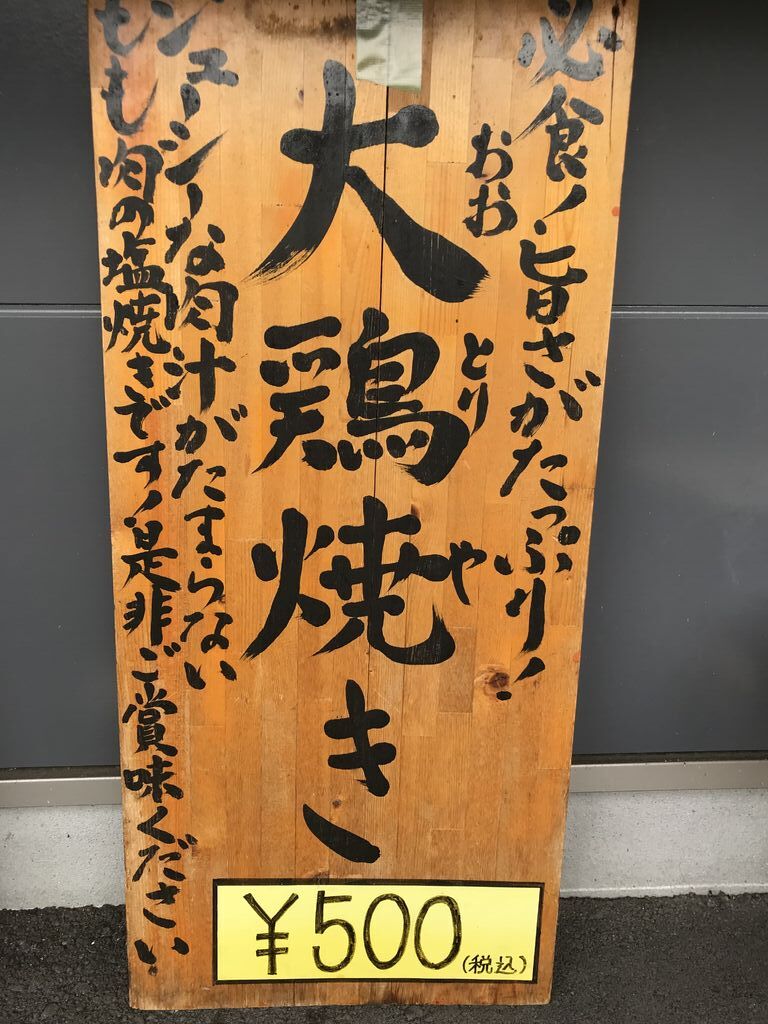 必食!旨さがたっぷり!
おおとりや
大鶏焼き
ジューシーな肉汁がたまらない
もも肉の塩焼きです!是非ご賞味ください
¥500(税込)